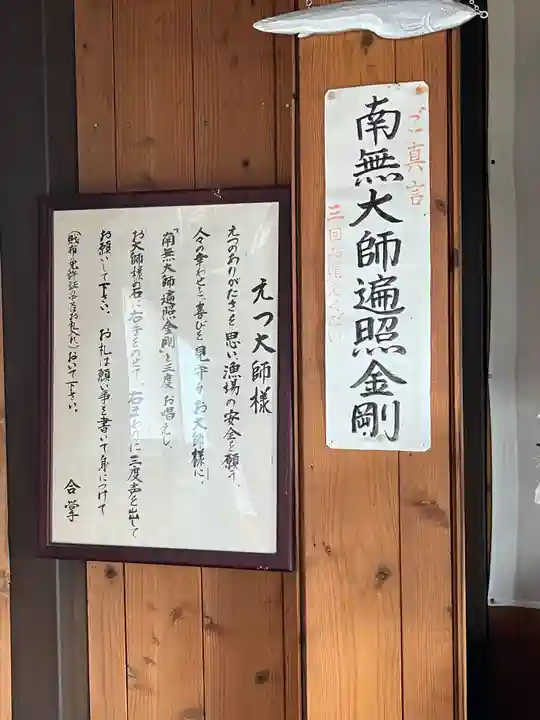 ご真言
南無大師遍照金剛
三回お唱え下さい
えつ大師様
えつのありがたさを思い漁場の安全を願う、
人々の幸わせと喜びを見守るお大師様に、
「南無大師遍照金剛」と三度お唱えし、
お大師様の石に右手をのせて、右まわりに三度声を出して
お願いして下さい。お札は願い事を書いて身につけて
(財布・免許証の
お札入れ)おいて下さい。
合掌